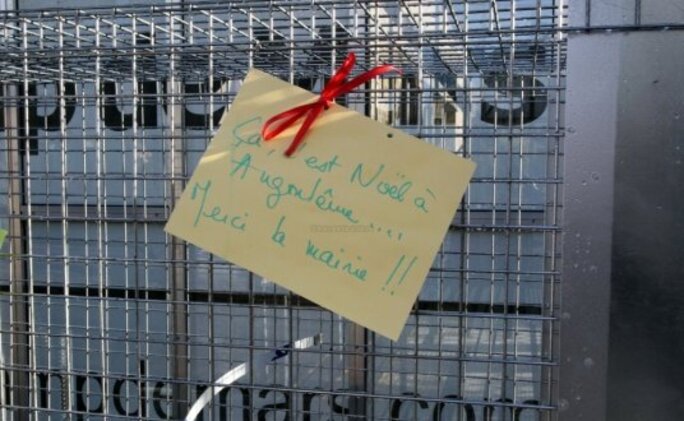 Ça c'est Noël à
Angoulême....
Merci la mairie !!
mpdemars.com